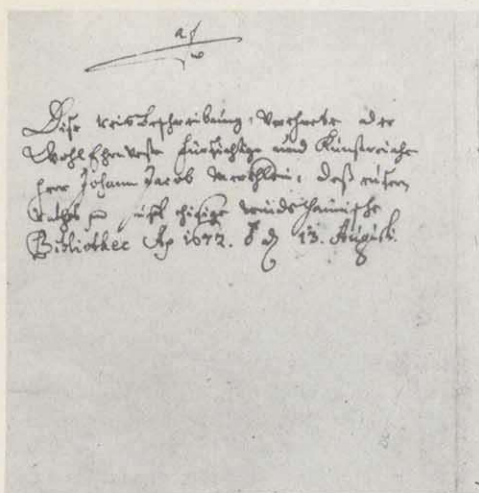 Dise reis Beschreibung, Verehrete der
Wohl Ehrenveste fürsichtige und Kunstreiche
Herr Johann Jacob Mercklein, deß eusern
Raths auff hiesige windsheimische
Bibliothec Ao 1672. d 13. Augusti.